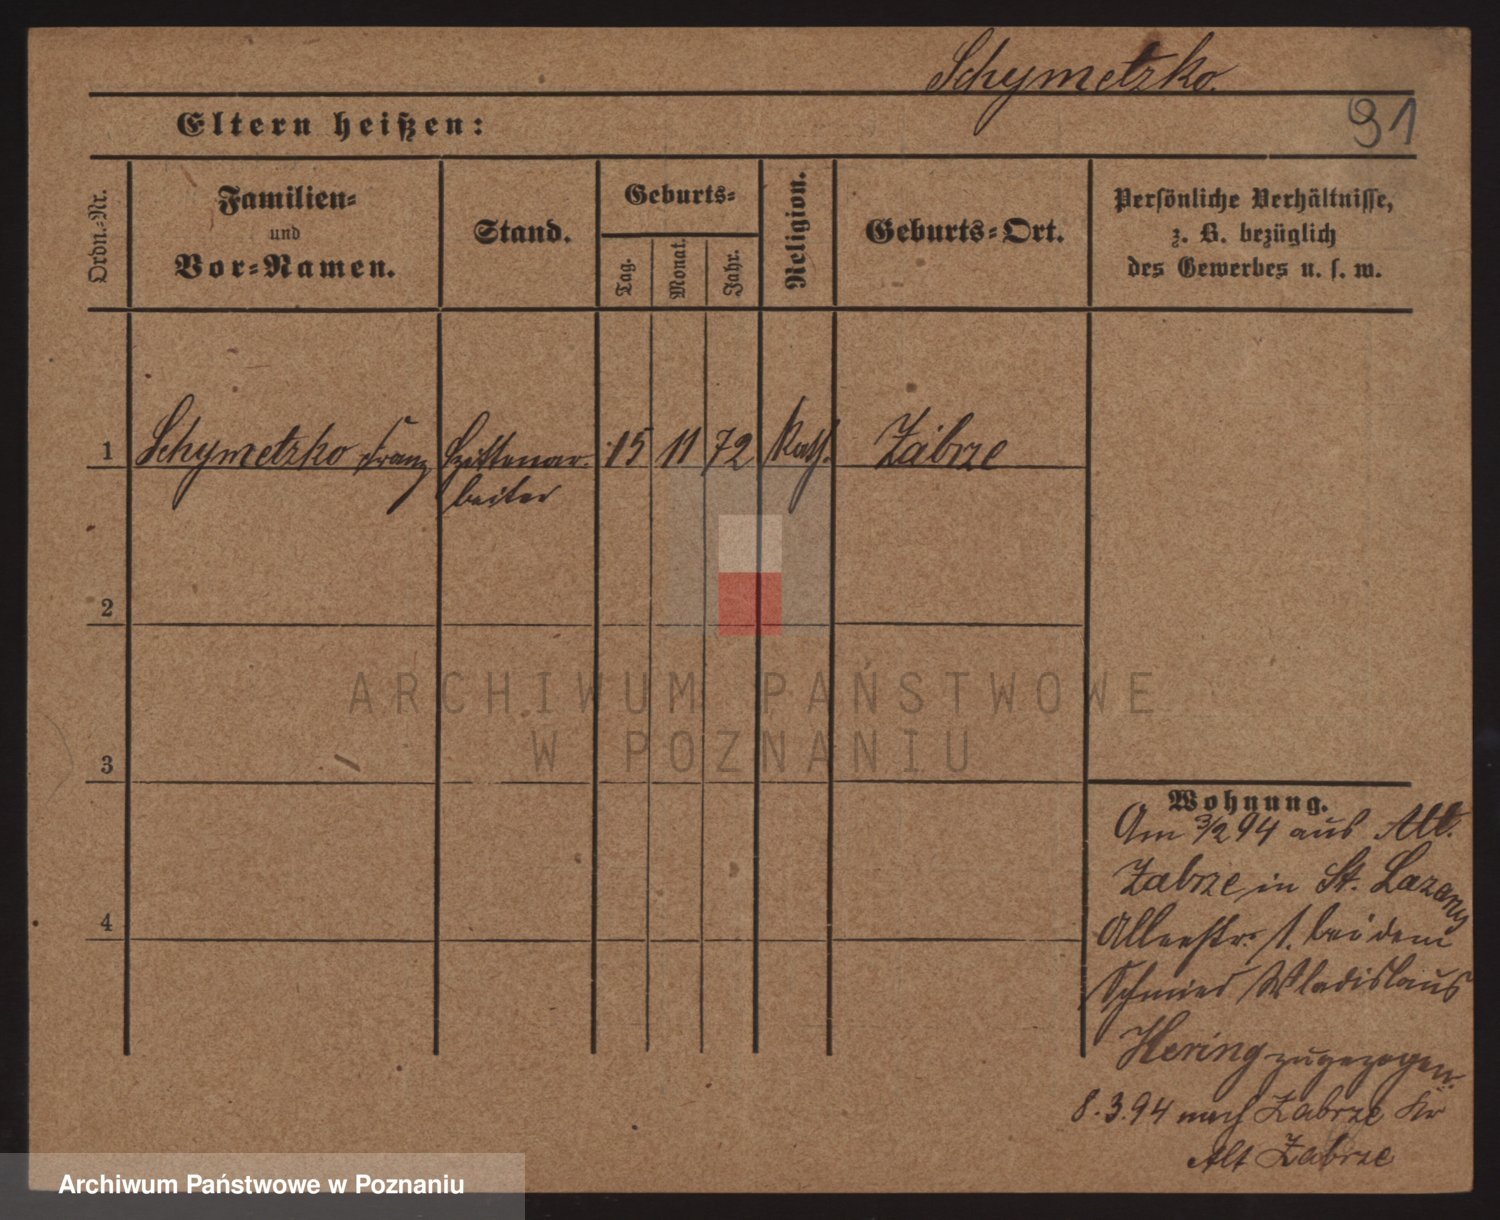 Schymetzko.
Eltern heißen:
91
Ordn.-Nr.
Familien-
und
Vor-Namen.
Stand.
Geburts-
Tag.
Monat.
Jahr.
Religion.
Geburts-Ort.
Persönliche Verhältnisse,
z. B. bezüglich
des Gewerbes u. s. w.
1 Schymetzko Franz Hüttenar- 15 11 72 Kath. Zabrze
beiter
2
3
4
Wohnung.
Am 3/2 94 aus Alt.
Zabrze in St. Lazarus
Allerstr. 1. bei dem
Schmied Wladislaus
Hering zugezogen.
8.3.94 nach Zabrze Kr
Alt Zabrze
ARCHIWUM PAŃSTWOWE
W POZNANIU
Archiwum Państwowe w Poznaniu